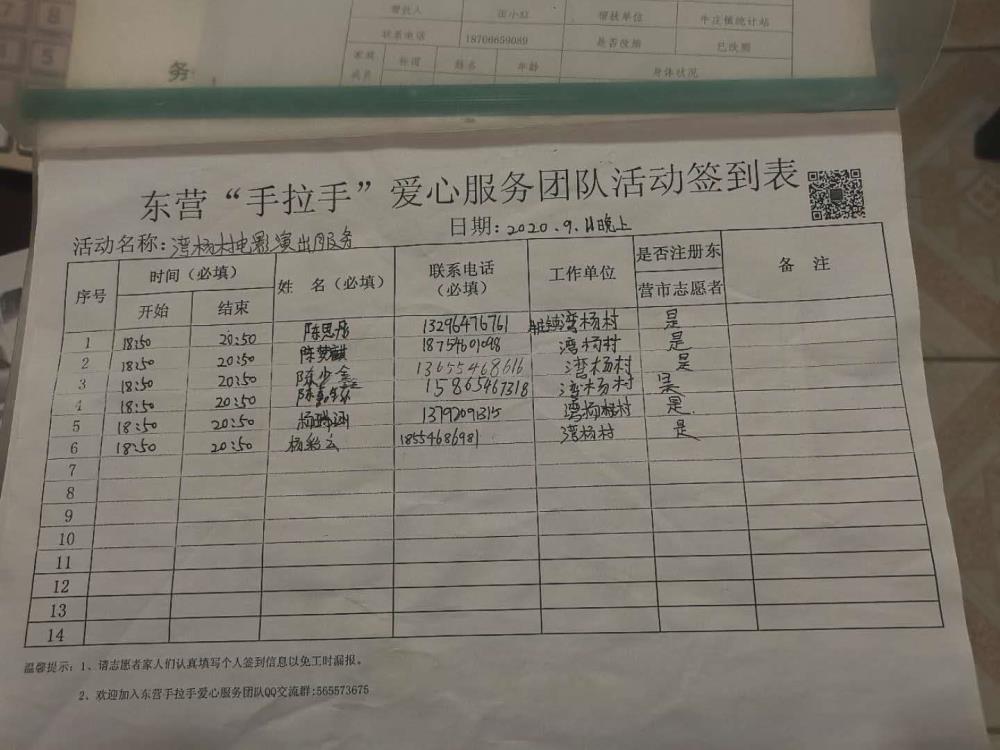 帮扶人 汪小红 帮扶单位 牛庄镇统计站
联系电话 18706659089 是否改频 已改频
家庭成员 称谓 姓名 年龄 身体状况
务
5
东营“手拉手”爱心服务团队活动签到表
活动名称：湾杨村电影演出服务 日期：2020.9.11晚上
序号 时间（必填） 姓 名（必填） 联系电话（必填） 工作单位 是否注册东营市志愿者 备 注
开始 结束
1 18:50 20:50 陈思彤 13296476761 湾杨村 是
2 18:50 20:50 陈梦麒 18754601098 湾杨村 是
3 18:50 20:50 陈少鑫 13655468616 湾杨村 是
4 18:50 20:50 陈 15865467318 湾杨村 是
5 18:50 20:50 杨瑞涵 13792091315 湾杨村 是
6 18:50 20:50 杨彩云 18554686981 湾杨村 是
7
8
9
10
11
12
13
14
温馨提示：1、请志愿者家人们认真填写个人签到信息以免工时漏报。
2、欢迎加入东营手拉手爱心服务团队QQ交流群:565573675